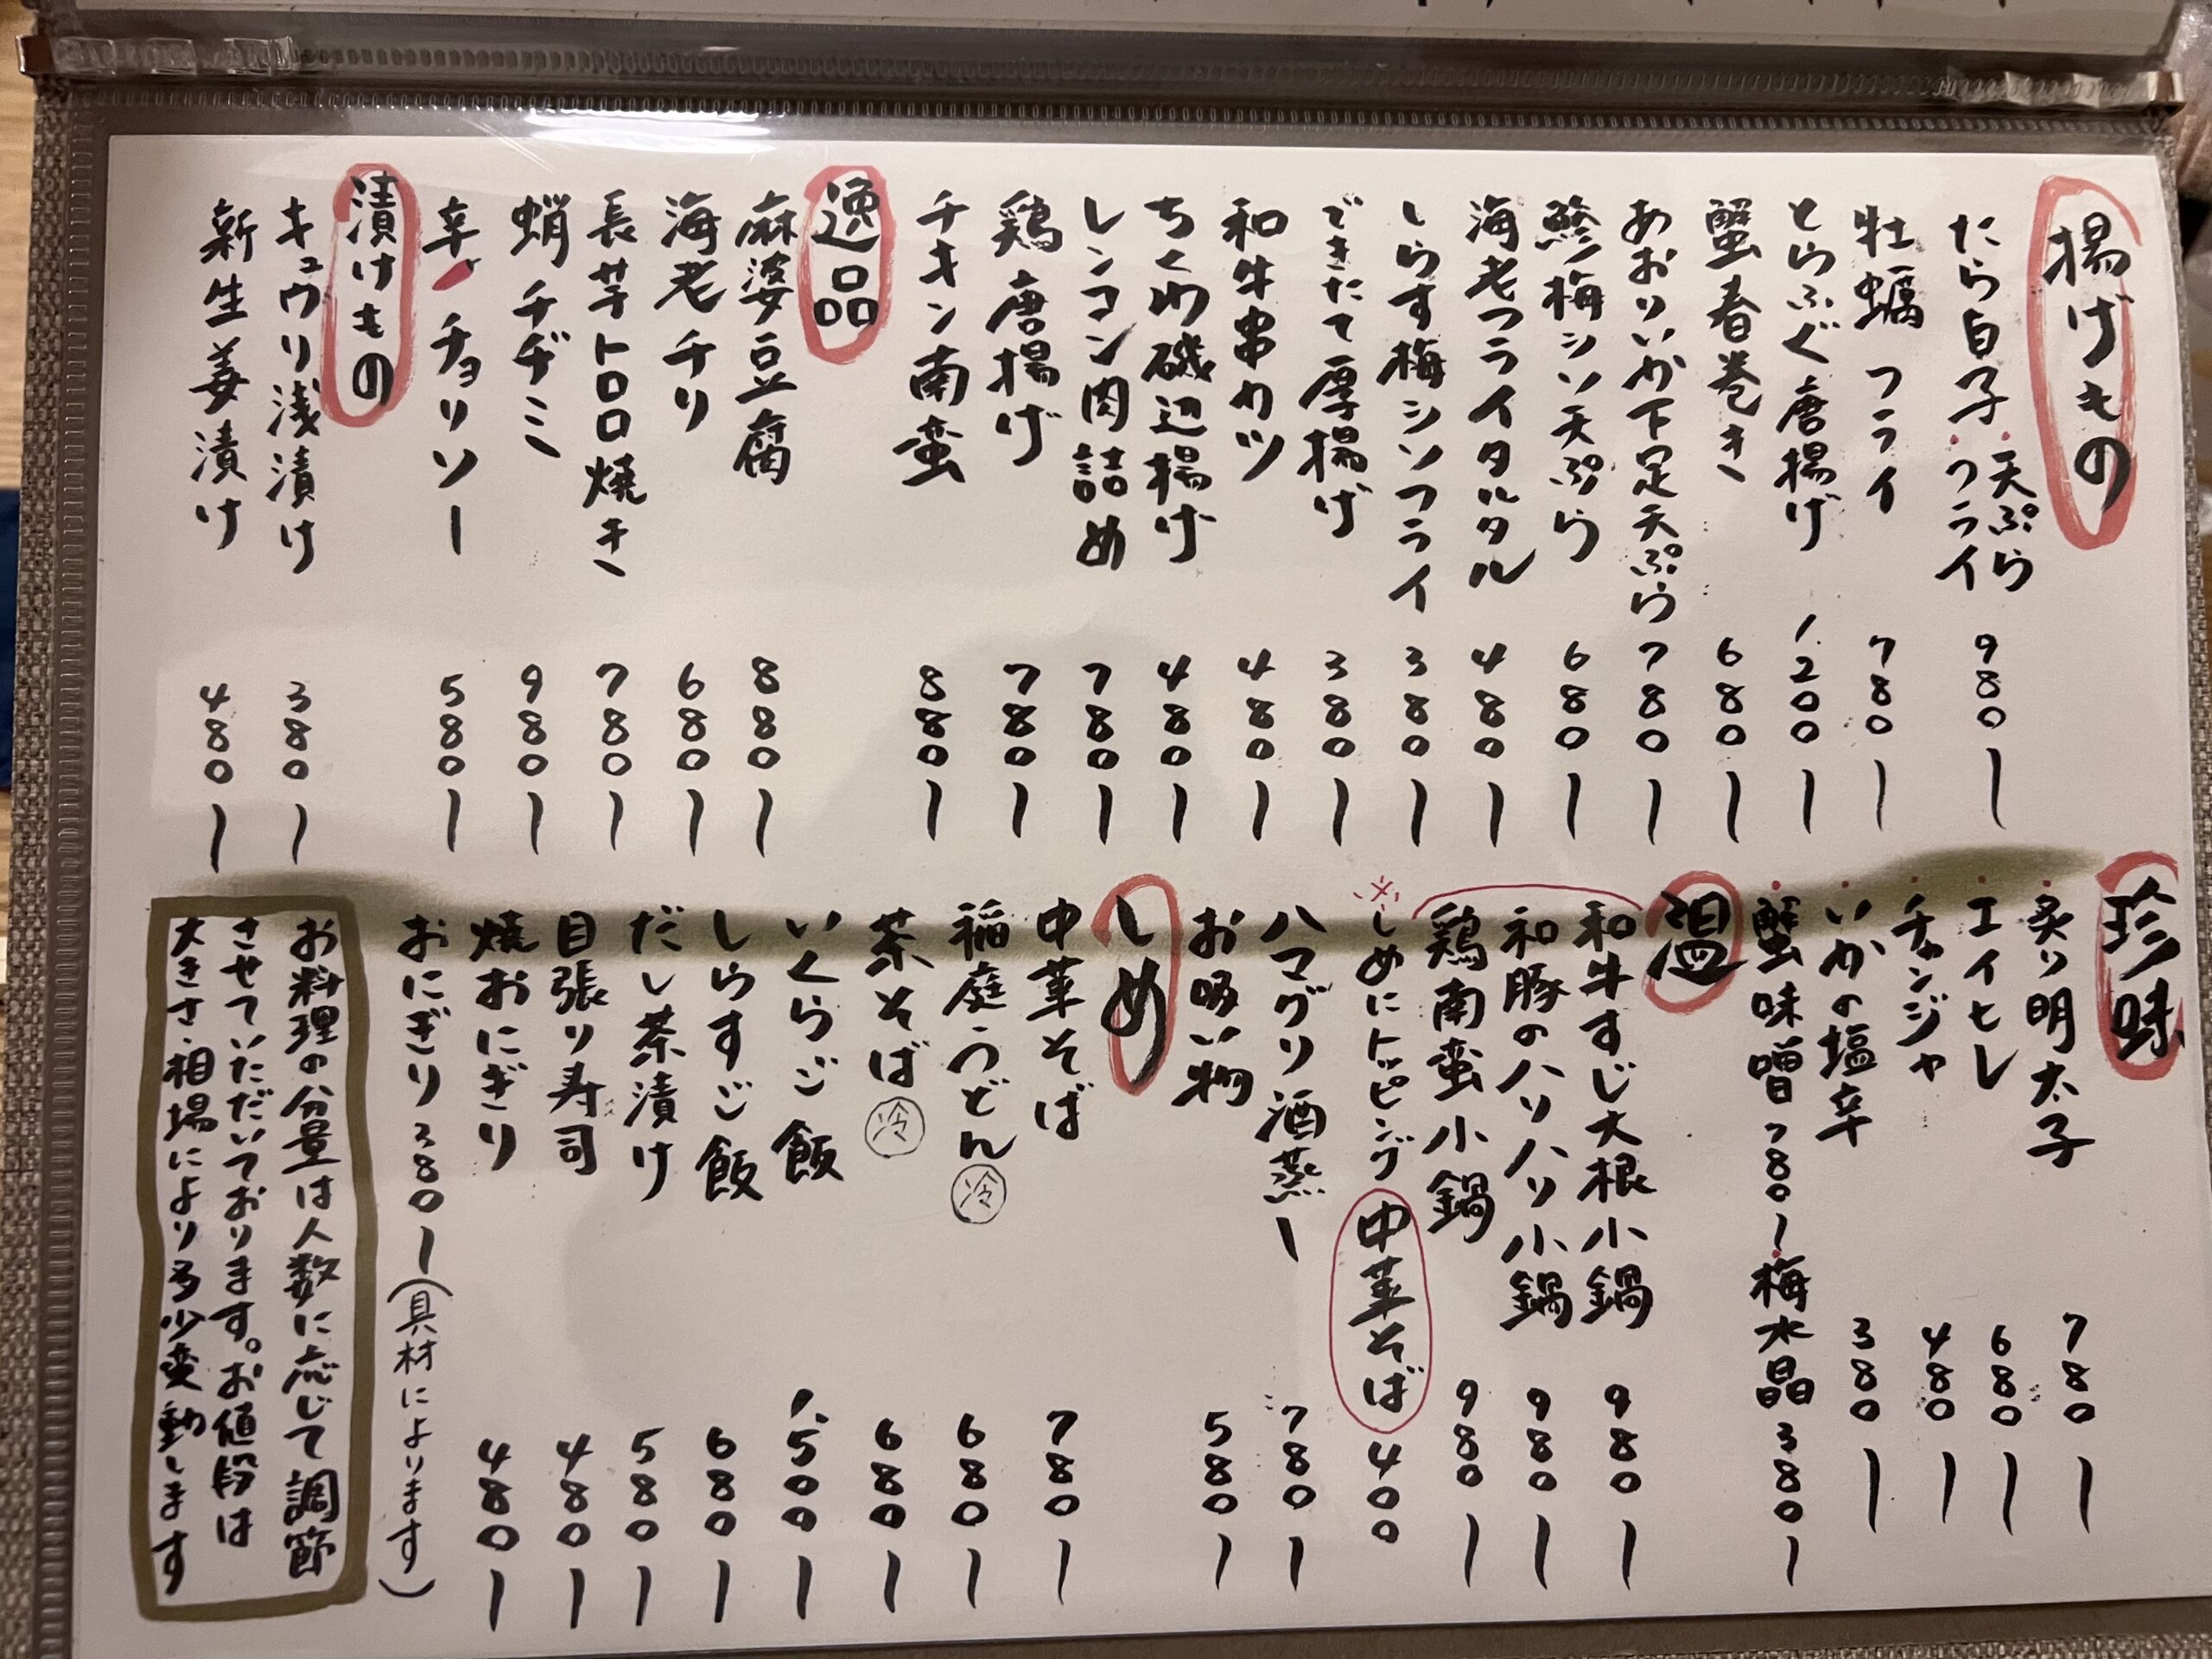 揚げもの
たら白子・天ぷら・フライ 980ー
牡蠣フライ 780ー
とらふぐ唐揚げ 1,200ー
蟹春巻き 680ー
あおりいか下足天ぷら 780ー
鯵梅シソ天ぷら 680ー
海老フライタルタル 480ー
しらす梅シソフライ 380ー
できたて厚揚げ 380ー
和牛串カツ 480ー
ちくわ磯辺揚げ 480ー
レンコン肉詰め 780ー
鶏唐揚げ 780ー
チキン南蛮 880ー
逸品
麻婆豆腐 880ー
海老チリ 680ー
長芋トロロ焼き 780ー
蛸チヂミ 980ー
辛チョリソー 580ー
漬けもの
キュウリ浅漬け 380ー
新生姜漬け 480ー
珍味
・炙り明太子 780ー
・エイヒレ 680ー
・チャンジャ 480ー
・いかの塩辛 380ー
・蟹味噌780ー・梅水晶380ー
温
和牛すじ大根小鍋 980ー
和豚のハリハリ小鍋 980ー
鶏南蛮小鍋 980ー
※しめにトッピング 中華そば 400
ハマグリ酒蒸ー 780ー
お吸い物 580ー
しめ
中華そば 780ー
稲庭うどん 冷 680ー
茶そば 冷 680ー
いくらご飯 1,500ー
しらすご飯 680ー
だし茶漬け 580ー
目張り寿司 480ー
焼おにぎり 480ー
おにぎり380ー(具材によります)
お料理の分量は人数に応じて調節
させていただいております。お値段は
大きさ・相場により多少変動します